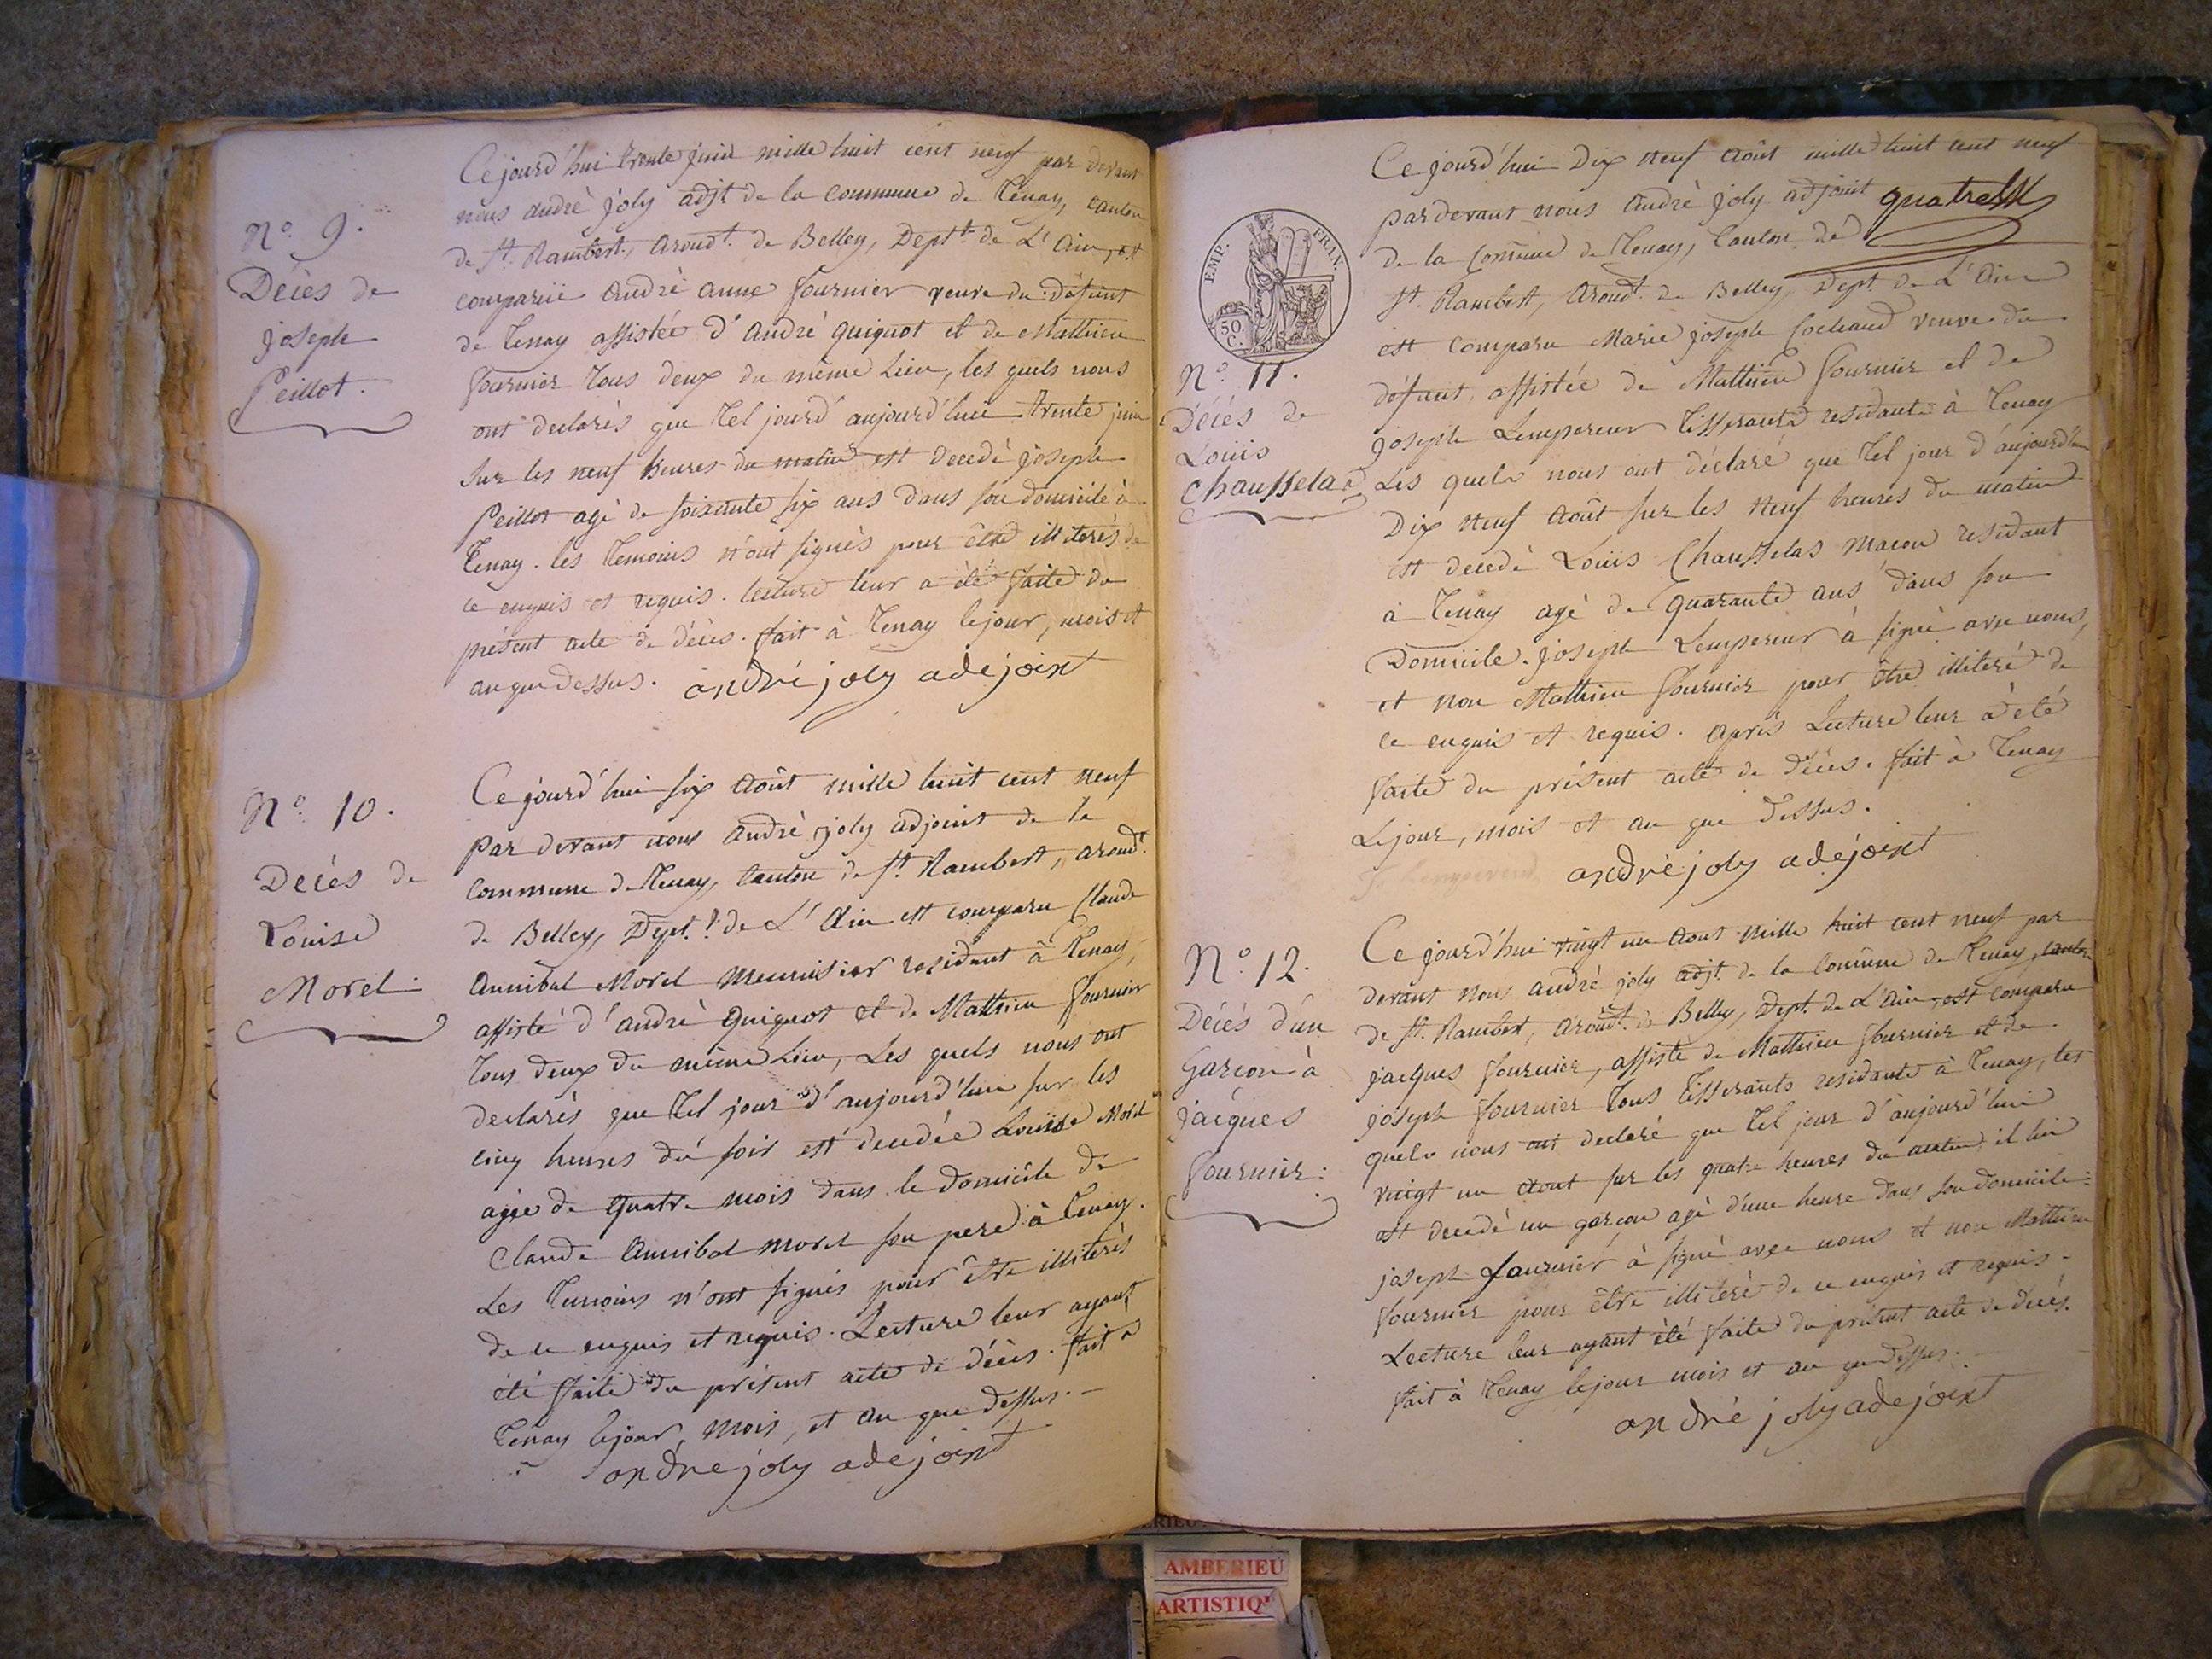 N.o 9.
Décès de
joseph
Peillot.
Cejourd'hui trente juin mille huit cent neuf par devant
nous andrè joly adjt de la commune de Tenay, canton
de St. Rambert, arond.t de Belley, Dept.t de L'Ain, est
comparüe andrè anne fournier veuve du défunt
de Tenay assistée d'andrè quiquot et de Mathieu
fournier tous deux du même lieu, les quels nous
ont declarés que tel jourd'aujourd'hui trente juin
sur les neuf heures du matin est decedè joseph
Peillot agè de soixante six ans dans son domicile à
Tenay. les temoins n'ont signès pour être illiterès de
ce enquis et requis. lecture leur a été faite du
présent acte de décès. fait à Tenay lejour, mois et
an que dessus. andré joly adejoint
N.o 10.
Decés de
Louise
Morel
Ce jourd'hui six Août mille huit cent neuf
par devant nous andrè joly adjoint de la
commune de Tenay, Canton de St. Rambert, arond.t
de Belley, Dept.t de L'Ain est comparu Claude
Annibal Morel meunisier residant à Tenay,
assisté d'andrè quiquot et de Mathieu fournier
tous deux du même Lieu, Les quels nous ont
declarés que tel jour d'aujourd'hui sur les
cinq heures du soir est decedée Louise Morel
agée de quatre mois dans le domicile de
Claude Annibal Morel son pere à Tenay.
Les Temoins n'ont signés pour être illiterés
de ce enquis et requis. Lecture leur ayant
été faite du présent acte de décès. fait à
Tenay lejour, mois, et an que dessus.
andré joly adejoint
EMP. FRAN.
50.
C.
N.o 11.
Décés de
Louis
Chausselas
Ce jourd'hui Dix neuf Août mille huit cent neuf
pardevant nous André joly adjoint
de la Commune de Tenay, Canton de
St. Rambert, arond.t de Belley, Dept. de L'Ain
est comparu Marie joseph Cochaud veuve du
défunt, assistée de Mathieu fournier et de
joseph Lempereur Tisserants residants à Tenay
Les quels nous ont déclaré que tel jour d'aujourd'hui
Dix neuf Août sur les neuf heures du matin
est decedé Louis Chausselas macon residant
à Tenay agé de quarante ans dans son
Domicile. joseph Lempereur à signè avec nous,
et non Mathieu fournier pour être illiteré de
ce enquis et requis. après Lecture leur à été
faite du présent acte de décès. fait à Tenay
Lejour, mois et an que dessus.
andré joly adejoint
N.o 12.
Décés d'un
Garcon à
jacques
fournier.
Ce jourd'hui vingt un Aout mille huit cent neuf par
devant nous andré joly adjt. de la Commune de Tenay, canton
de St. Rambert, arond.t de Belley, Dept. de L'Ain, est comparu
jacques fournier, assisté de Mathieu fournier et de
joseph fournier tous Tisserants residants à Tenay, les
quels nous ont declaré que tel jour d'aujourd'hui
vingt un Aout sur les quatre heures du matin, il lui
est decedé un garcon agé d'une heure dans son domicile.
joseph fournier à signé avec nous et non Mathieu
fournier pour être illiteré de ce enquis et requis.
Lecture leur ayant été faite du présent acte de décés.
fait à Tenay lejour mois et an que dessus.
andré joly adejoint
AMBERIEU
ARTISTIQ